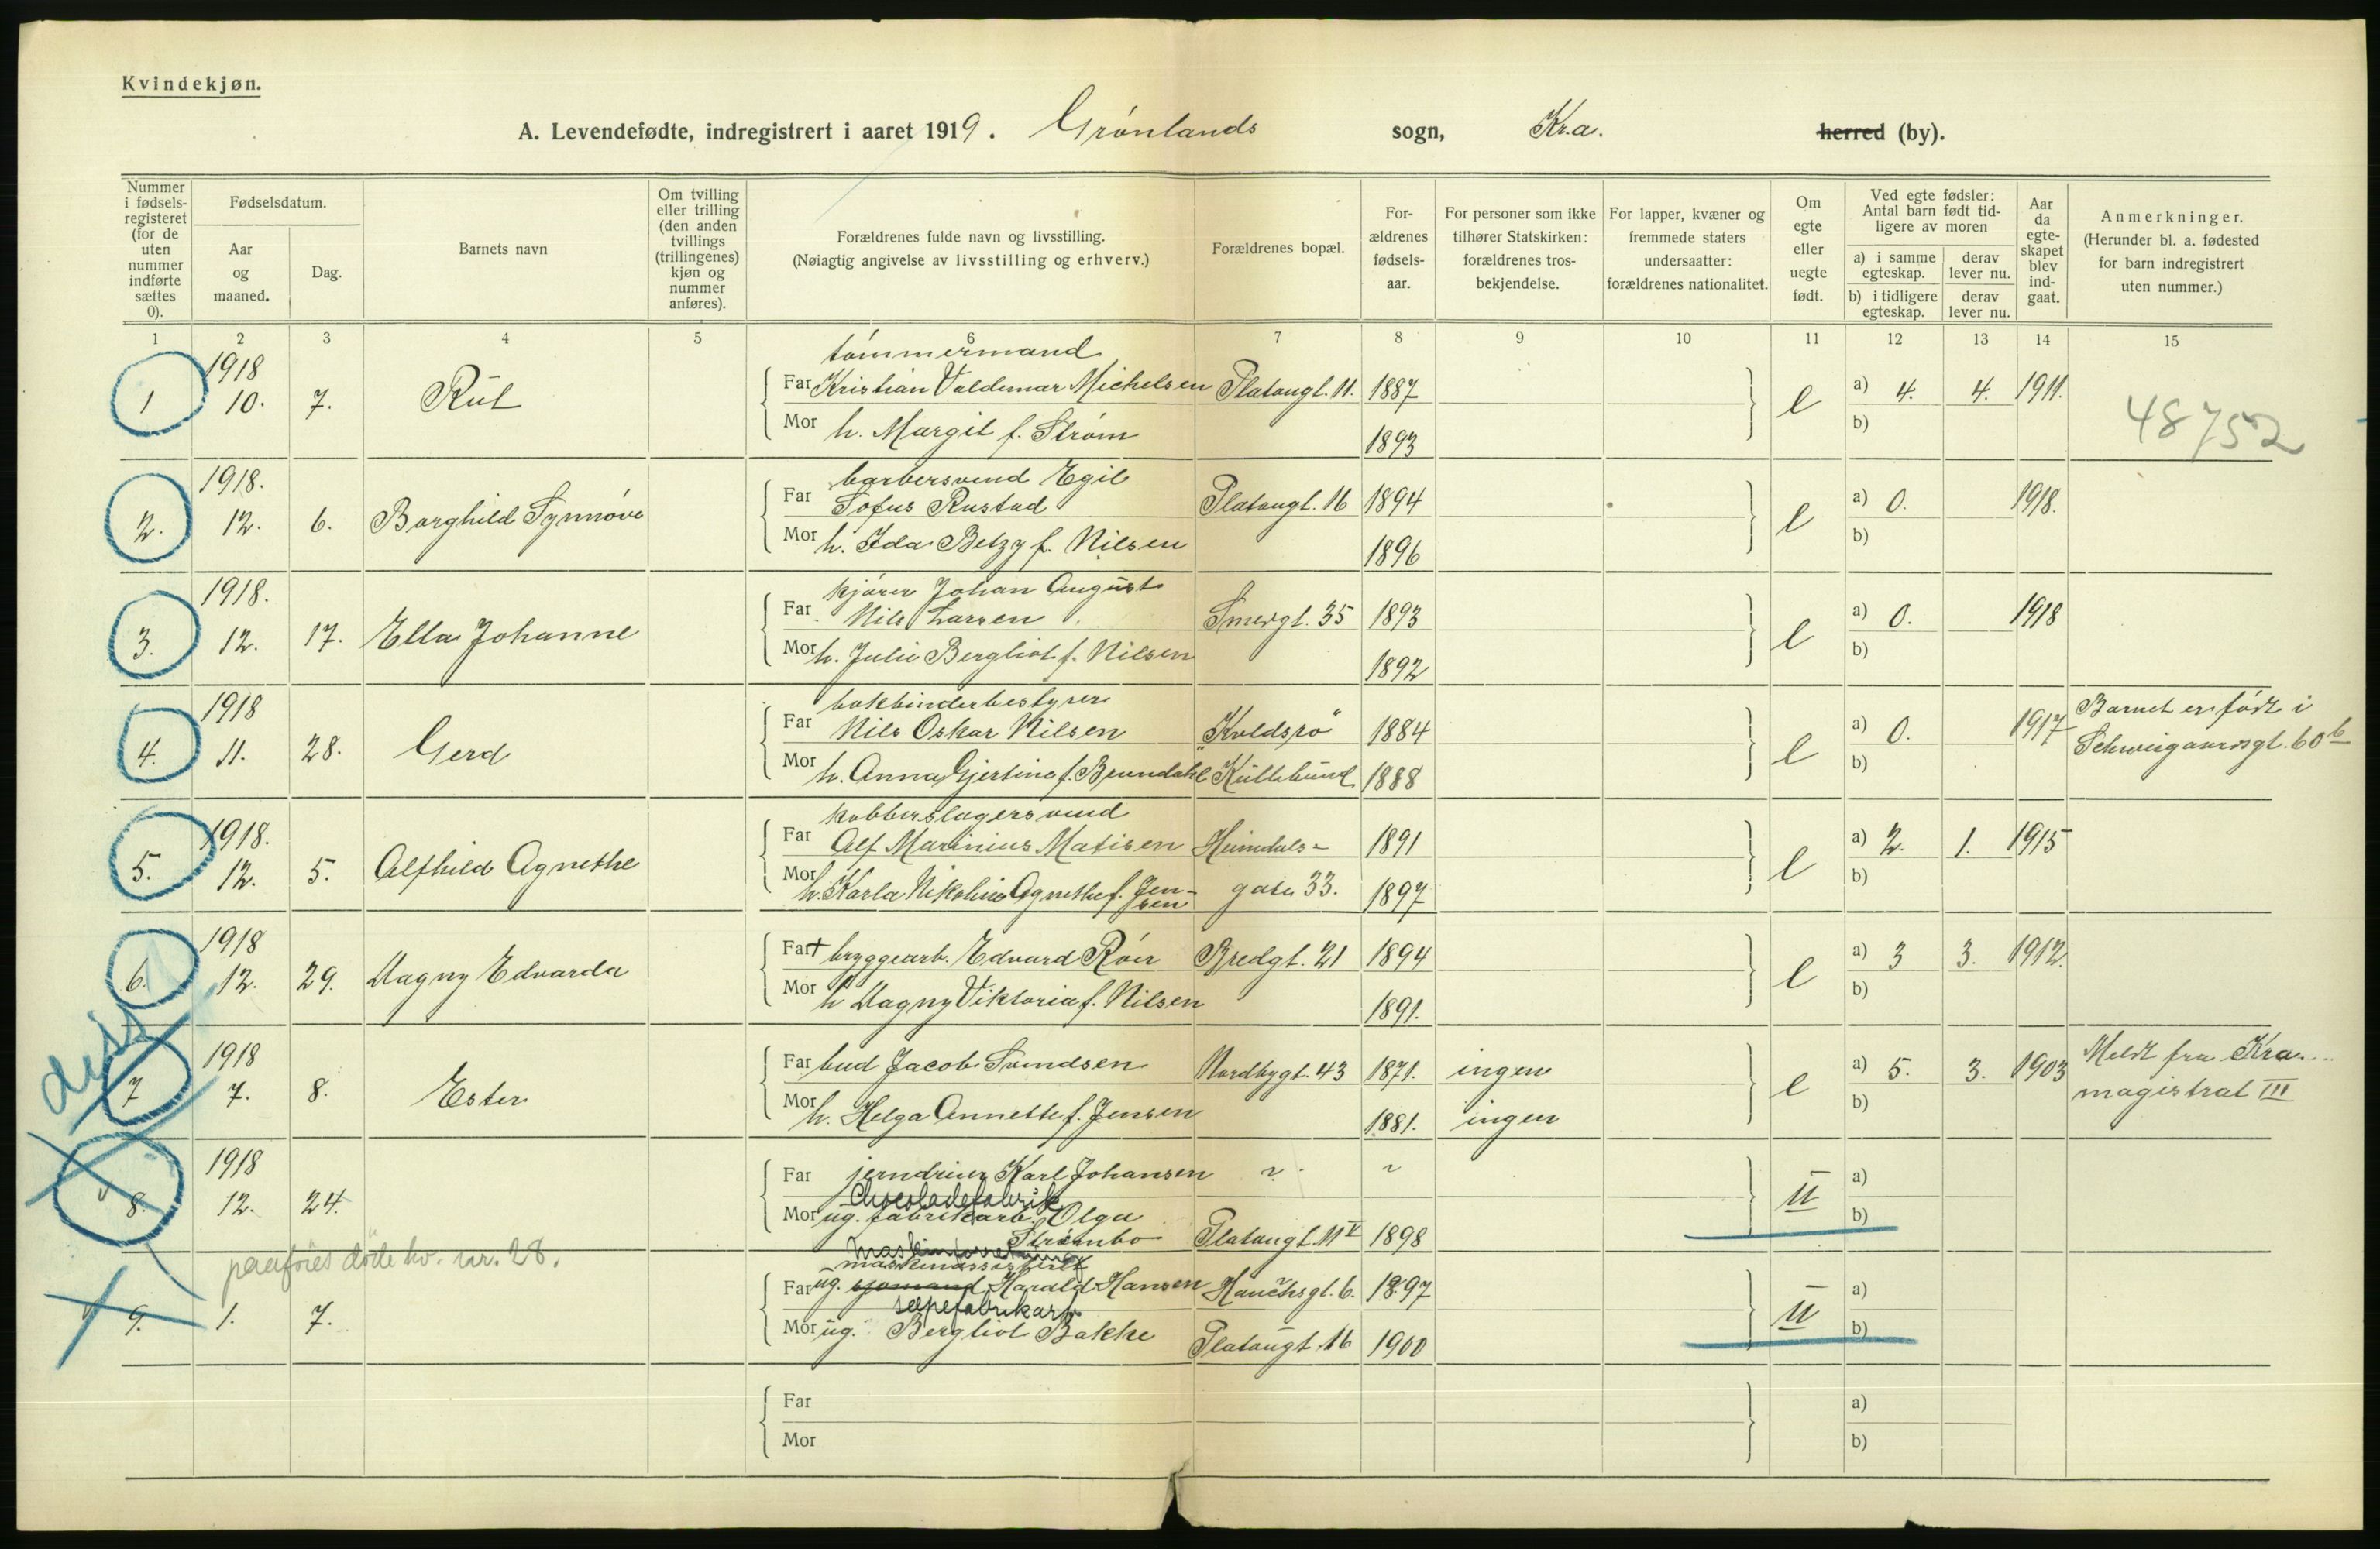 Kvindekjøn.
A. Levendefødte, indregistrert i aaret 1919. Grønlands sogn, Kr.a. herred (by).
Nummer i fødsels-registeret (for de uten nummer indførte sættes 0).
Fødselsdatum.
Aar og maaned.
Dag.
Barnets navn
Om tvilling eller trilling (den anden tvillings (trillingenes) kjøn og nummer anføres).
Forældrenes fulde navn og livsstilling.
(Nøiagtig angivelse av livsstilling og erhverv.)
Forældrenes bopæl.
For-ældrenes fødsels-aar.
For personer som ikke tilhører Statskirken: forældrenes tros-bekjendelse.
For lapper, kvæner og fremmede staters undersaatter: forældrenes nationalitet.
Om egte eller uegte født.
Ved egte fødsler: Antal barn født tid-ligere av moren
a) i samme egteskap.
derav lever nu.
b) i tidligere egteskap.
derav lever nu.
Aar da egte-skapet blev ind-gaat.
Anmerkninger.
(Herunder bl. a. fødested for barn indregistrert uten nummer.)
1 2 3 4 5 6 7 8 9 10 11 12 13 14 15
1918 tømmermand
1 10. 7. Rut Far Kristian Valdemar Michelsen Platougt. 11. 1887 e a) 4. 4. 1911.
Mor h. Margit f. Strøm 1893 b)
48752
1918. barbersvend Egil
2. 12. 6. Borghild Synnøve Far Sofus Rustad Platougt. 16 1894 e a) 0. 1918.
Mor h. Ida Betzy f. Nilsen 1896 b)
1918. kjører Johan August
3. 12. 17. Ella Johanne Far Nils Larsen Smergt. 35 1893 e a) 0. 1918
Mor h. Julie Bergliot f. Nilsen 1892 b)
1918 bokbinderbestyrer Barnet er født i
4. 11. 28. Gerd Far Nils Oskar Nilsen "Kveldsro" 1884 e a) 0. 1917 Schweigaardsgt. 60 b
Mor h. Anna Gjertine f. Brundahl 1888 b)
1918. kobberslagersvend
5. 12. 5. Alfhild Agnethe Far Alf Marinius Matisen Heimdals- 1891 e a) 2. 1. 1915
Mor h. Karla Nikoline Agnethe f. Jensen gate 33. 1897 b)
1918
6. 12. 29. Dagny Edvarda Far † bryggearb. Edvard Røir Bredgt. 21 1894 e a) 3 3. 1912.
Mor h Dagny Viktoria f. Nilsen 1891. b)
død
1918
7 7. 8. Ester Far bud Jacob Svendsen Nordbygt. 43 1871. ingen e a) 5. 3. 1903 Meldt fra Kra.
Mor h. Helga Annette f. Jensen 1881. ingen b) magistrat III
1918
8. 12. 24. Far jerndreier Karl Johansen ? ? u a)
Chocoladefabrik
Mor ug. fabrikarb. Olga b)
Strømbo Platougt. 11 V 1898
paaføres døde kv. nr. 28.
maskinassistent
9. 1. 7. Far ug. sjømand Harald Hansen Hauchsgt. 6. 1897 u a)
sæpefabrikarb.
Mor ug. Bergliot Bakke Platougt. 16 1900 b)
Far a)
Mor b)